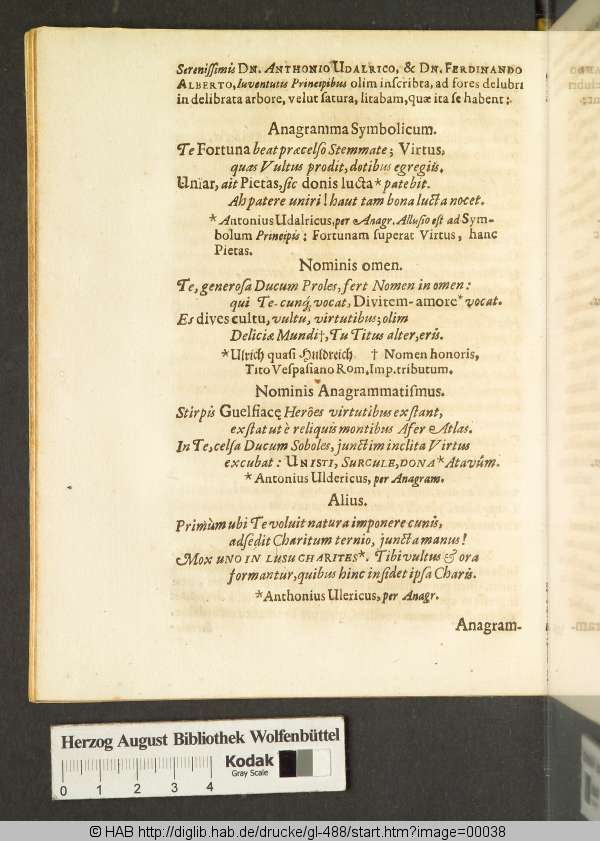 Serenissimis DN. ANTHONIO UDALRICO, & DN. FERDINANDO
ALBERTO, Iuventutis Principibus olim inscribta, ad fores delubri
in delibrata arbore, velut satura, litabam, quæ ita se habent:
Anagramma Symbolicum.
Te Fortuna beat præcelso Stemmate; Virtus,
quas Vultus prodit, dotibus egregiis.
Uniar, ait Pietas, sic donis lucta* patebit.
Ah patere uniri! haut tam bona lucta nocet.
*Antonius Udalricus, per Anagr. Allusio est ad Sym-
bolum Principis: Fortunam superat Virtus, hanc
Pietas.
Nominis omen.
Te, generosa Ducum Proles, fert Nomen in omen:
qui Te-cunq; vocat, Divitem-amore* vocat.
Es dives cultu, vultu, virtutibus; olim
Deliciæ Mundi†, Tu Titus alter, eris.
*Ulrich quasi Huldreich † Nomen honoris,
Tito Vespasiano Rom. Imp. tributum.
Nominis Anagrammatismus.
Stirpis Guelfiacę Herões virtutibus exstant,
exstat ut è reliquis montibus Afer Atlas.
In Te, celsa Ducum Soboles, junctim inclita Virtus
excubat: UNISTI, SURCULE, DONA* Atavûm.
*Antonius Uldericus, per Anagram.
Alius.
Primùm ubi Te voluit natura imponere cunis,
adsedit Charitum ternio, juncta manus!
Mox UNO IN LUSU CHARITES*. Tibi vultus & ora
formantur, quibus hinc insidet ipsa Charis.
*Anthonius Ulericus, per Anagr.
Anagram-
Herzog August Bibliothek Wolfenbüttel
Kodak
Gray Scale
0 1 2 3 4
© HAB http://diglib.hab.de/drucke/gl-488/start.htm?image=00038